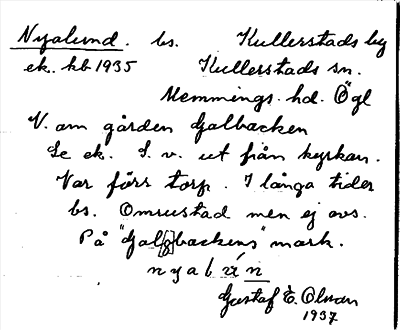 Nyalund. bs. Kullerstads by
ek. hb 1935 Kullerstads sn.
Memmings. hd. Ögl
V. om gården Galbacken
Se ek. S. v. ut från kyrkan.
Var förr torp. I långa tider
bs. Omrustad men ej avs.
På "Gal[g]backens" mark.
nyalún
Gustaf E. Olman
1937